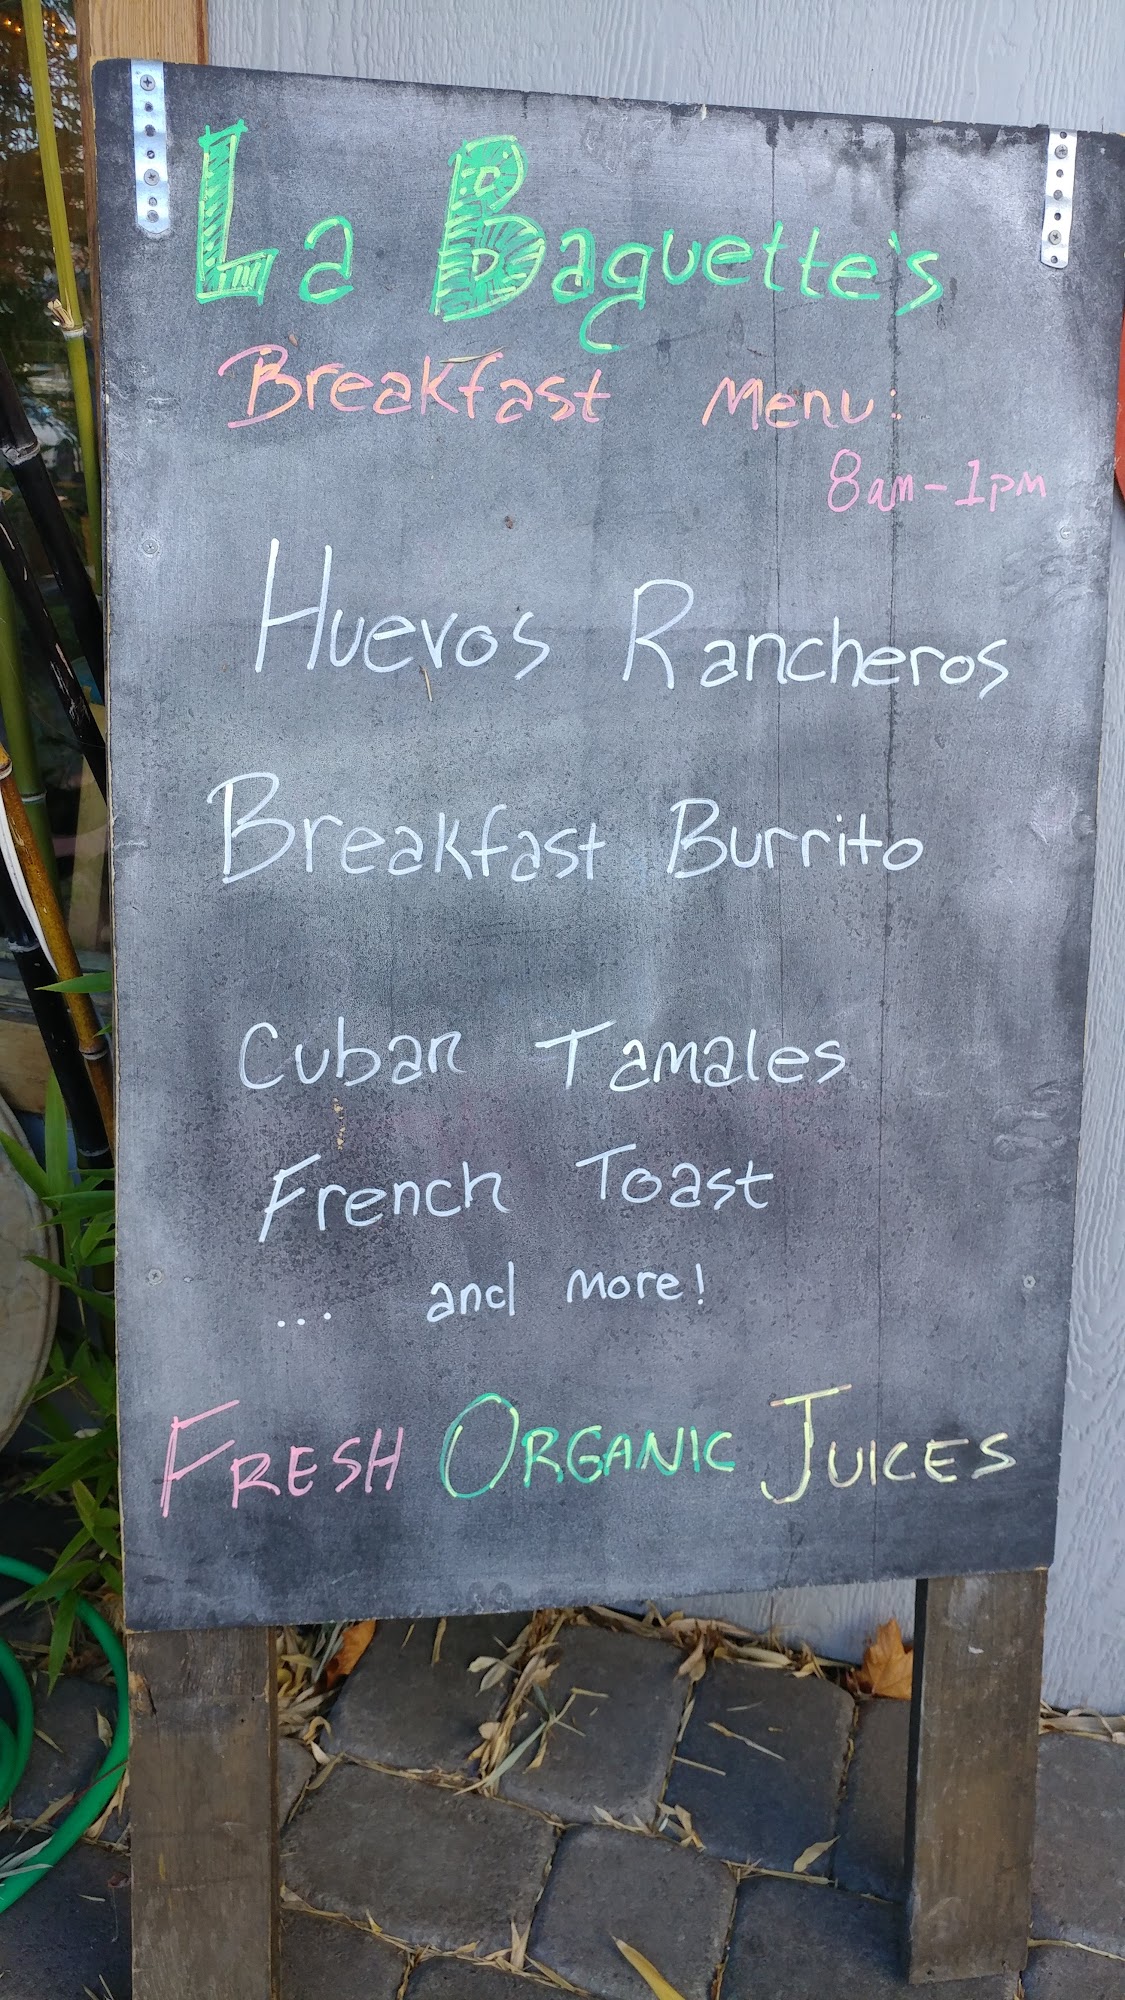 La Baguette's
Breakfast Menu:
8am - 1pm
Huevos Rancheros
Breakfast Burrito
Cuban Tamales
French Toast
... and more!
FRESH ORGANIC JUICES